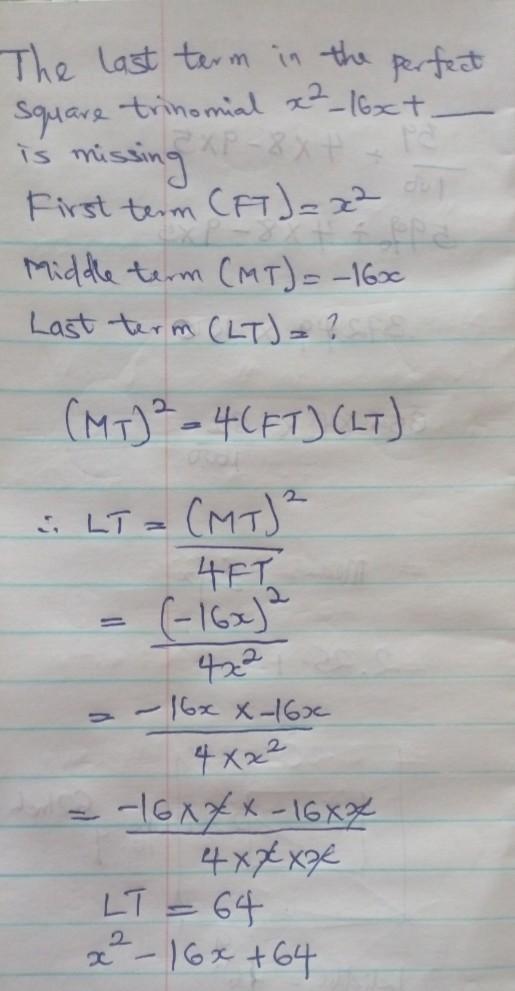 The last term in the perfect
square trinomial x² - 16x + ___
is missing
First term (FT) = x²
Middle term (MT) = -16x
Last term (LT) = ?
(MT)² = 4(FT)(LT)
∴ LT = (MT)²
4FT
= (-16x)²
4x²
= -16x × -16x
4 × x²
= -16 × x × -16 × x
4 × x × x
LT = 64
x² - 16x + 64